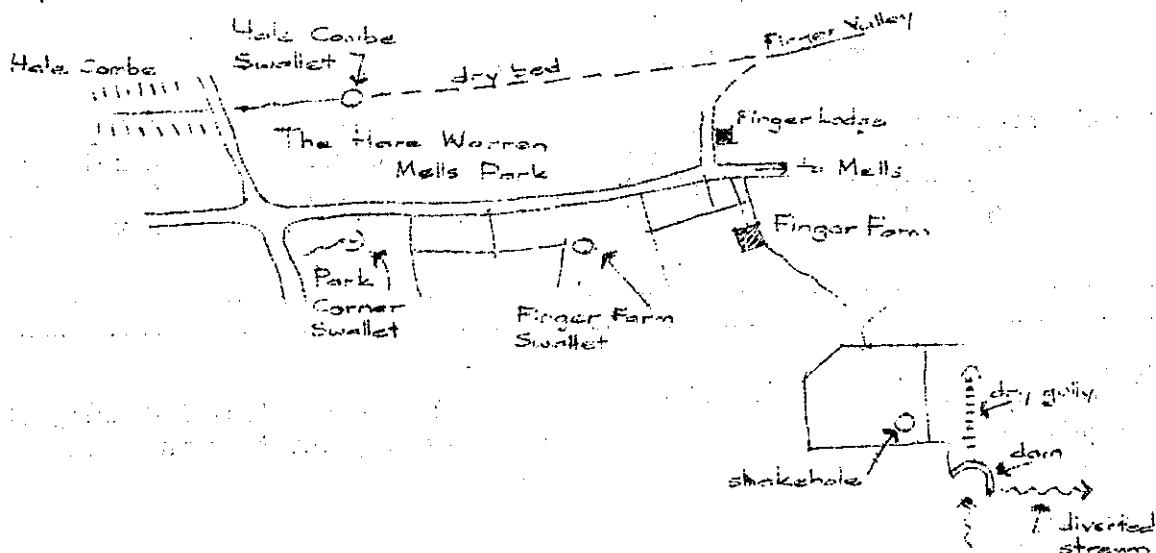 Hale Combe
Hale Combe
Swallet
dry bed
Finger Valley
The Hare Warren
Mells Park
Finger Lodge
to Mells
Finger Farm
Park
Corner
Swallet
Finger Farm
Swallet
dry gully
dam
shakehole
diverted
stream